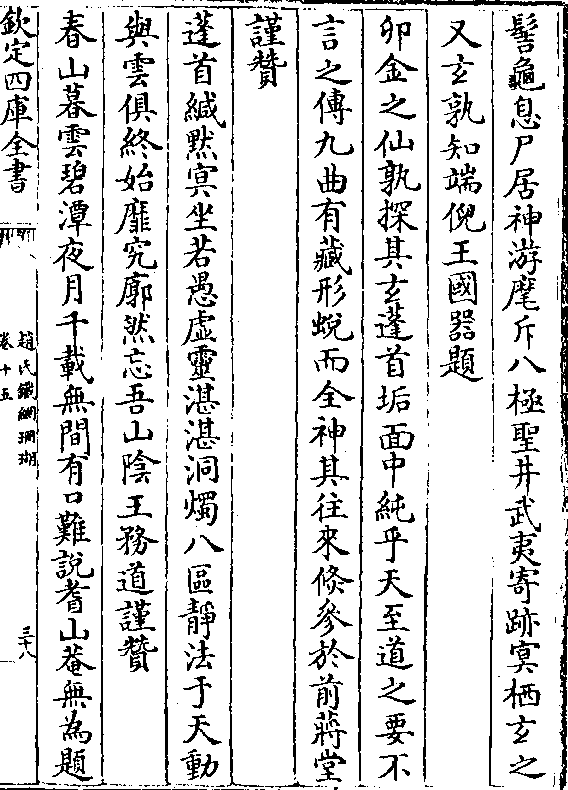 髻龜息尸居神游麾斥八極聖井武夷寄跡㝠栖玄之
又玄孰知端倪王國器題
卯金之仙孰探其玄蓬首垢面中純乎天至道之要不
言之傳九曲有藏形蛻而全神其往來倏參於前蔣堂
謹贊
蓬首緘黙㝠坐若愚虚靈湛湛洞燭八區靜法于天動
與雲俱終始靡究廓然忘吾山陰王務道謹贊
春山暮雲碧潭夜月千載無間有口難說耆山菴無為題
欽定四庫全書
趙氏鐵網珊瑚
卷十五
三十八